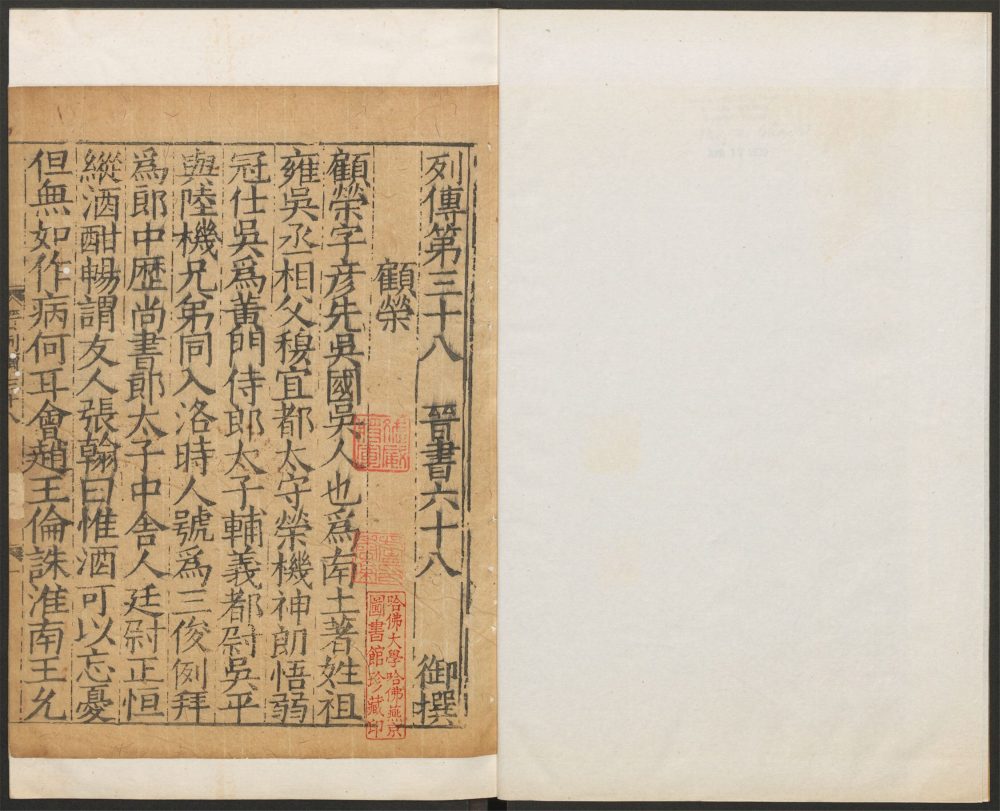 列傳第三十八　晉書六十八　御撰
顧榮
顧榮字彥先吳國吳人也爲南土著姓祖
雍吳丞相父穆宜都太守榮機神朗悟弱
冠仕吳爲黃門侍郎太子輔義都尉吳平
與陸機兄弟同入洛時人號爲三俊例拜
爲郎中歷尚書郎太子中舍人廷尉正恒
縱酒酣暢謂友人張翰曰惟酒可以忘憂
但無如作病何耳會趙王倫誅淮南王允
哈佛大學哈佛燕京
圖書館珍藏印